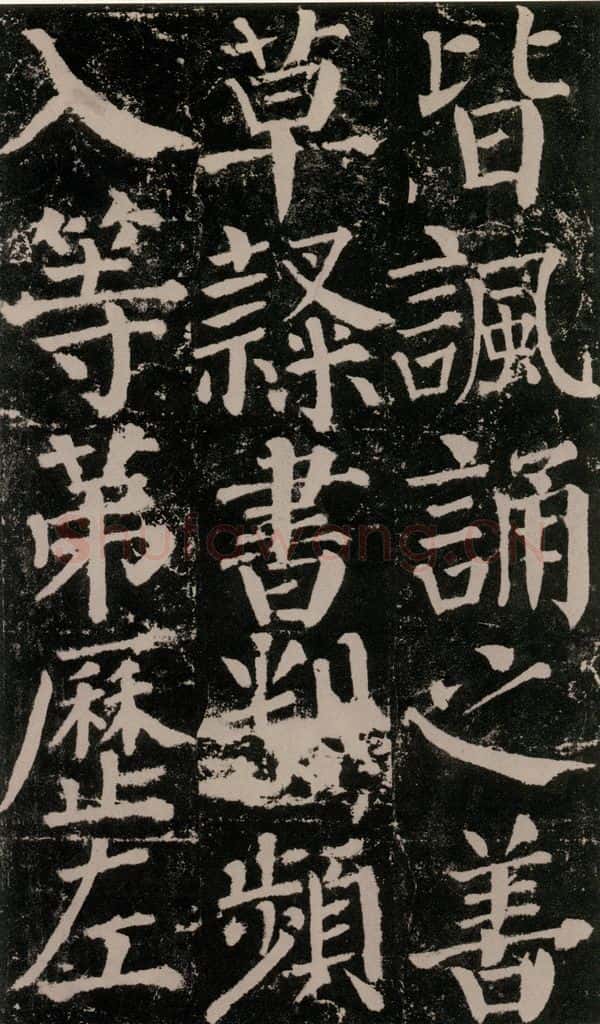 皆諷誦之善
草隸書判頻
入等第歷左
Shufawang.CN